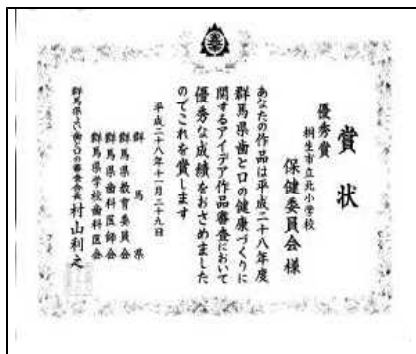 賞状
優秀賞
桐生市立北小学校
保健委員会様
あなたの作品は平成二十八年度
群馬県歯と口の健康づくりに
関するアイデア作品審査において
優秀な成績をおさめました
のでこれを賞します
平成二十八年十一月二十九日
群馬県
群馬県教育委員会
群馬県歯科医師会
群馬県学校歯科医会
村山利之